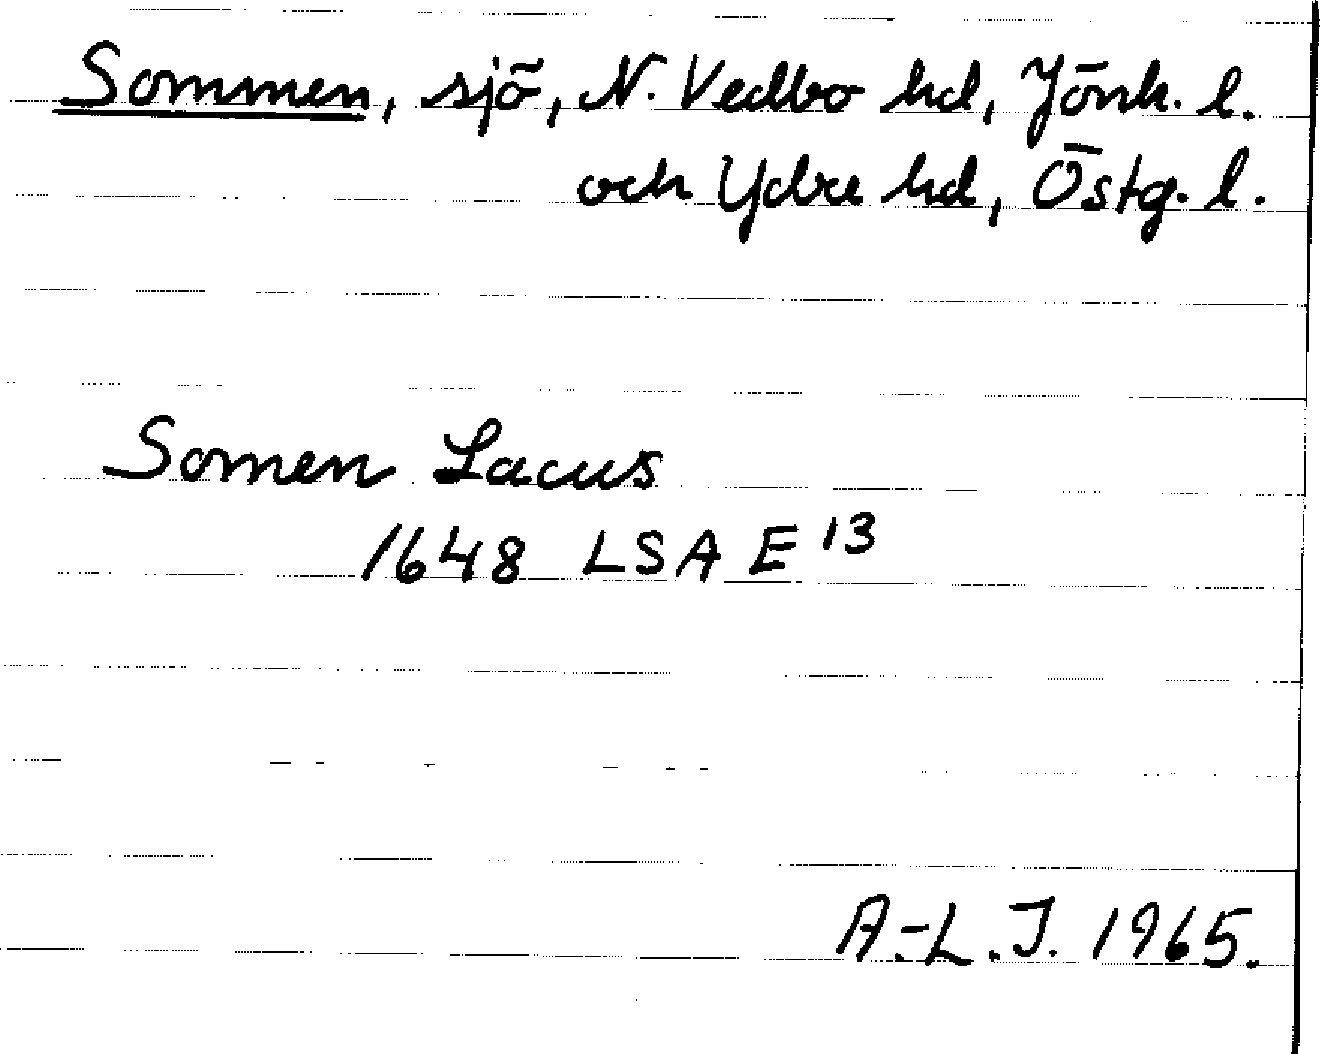 Sommen, sjö, N. Vedbo hd, Jönk. l.
och Ydre hd, Östg. l.
Somen Lacus
1648 LSA E 13
A.-L. J. 1965.